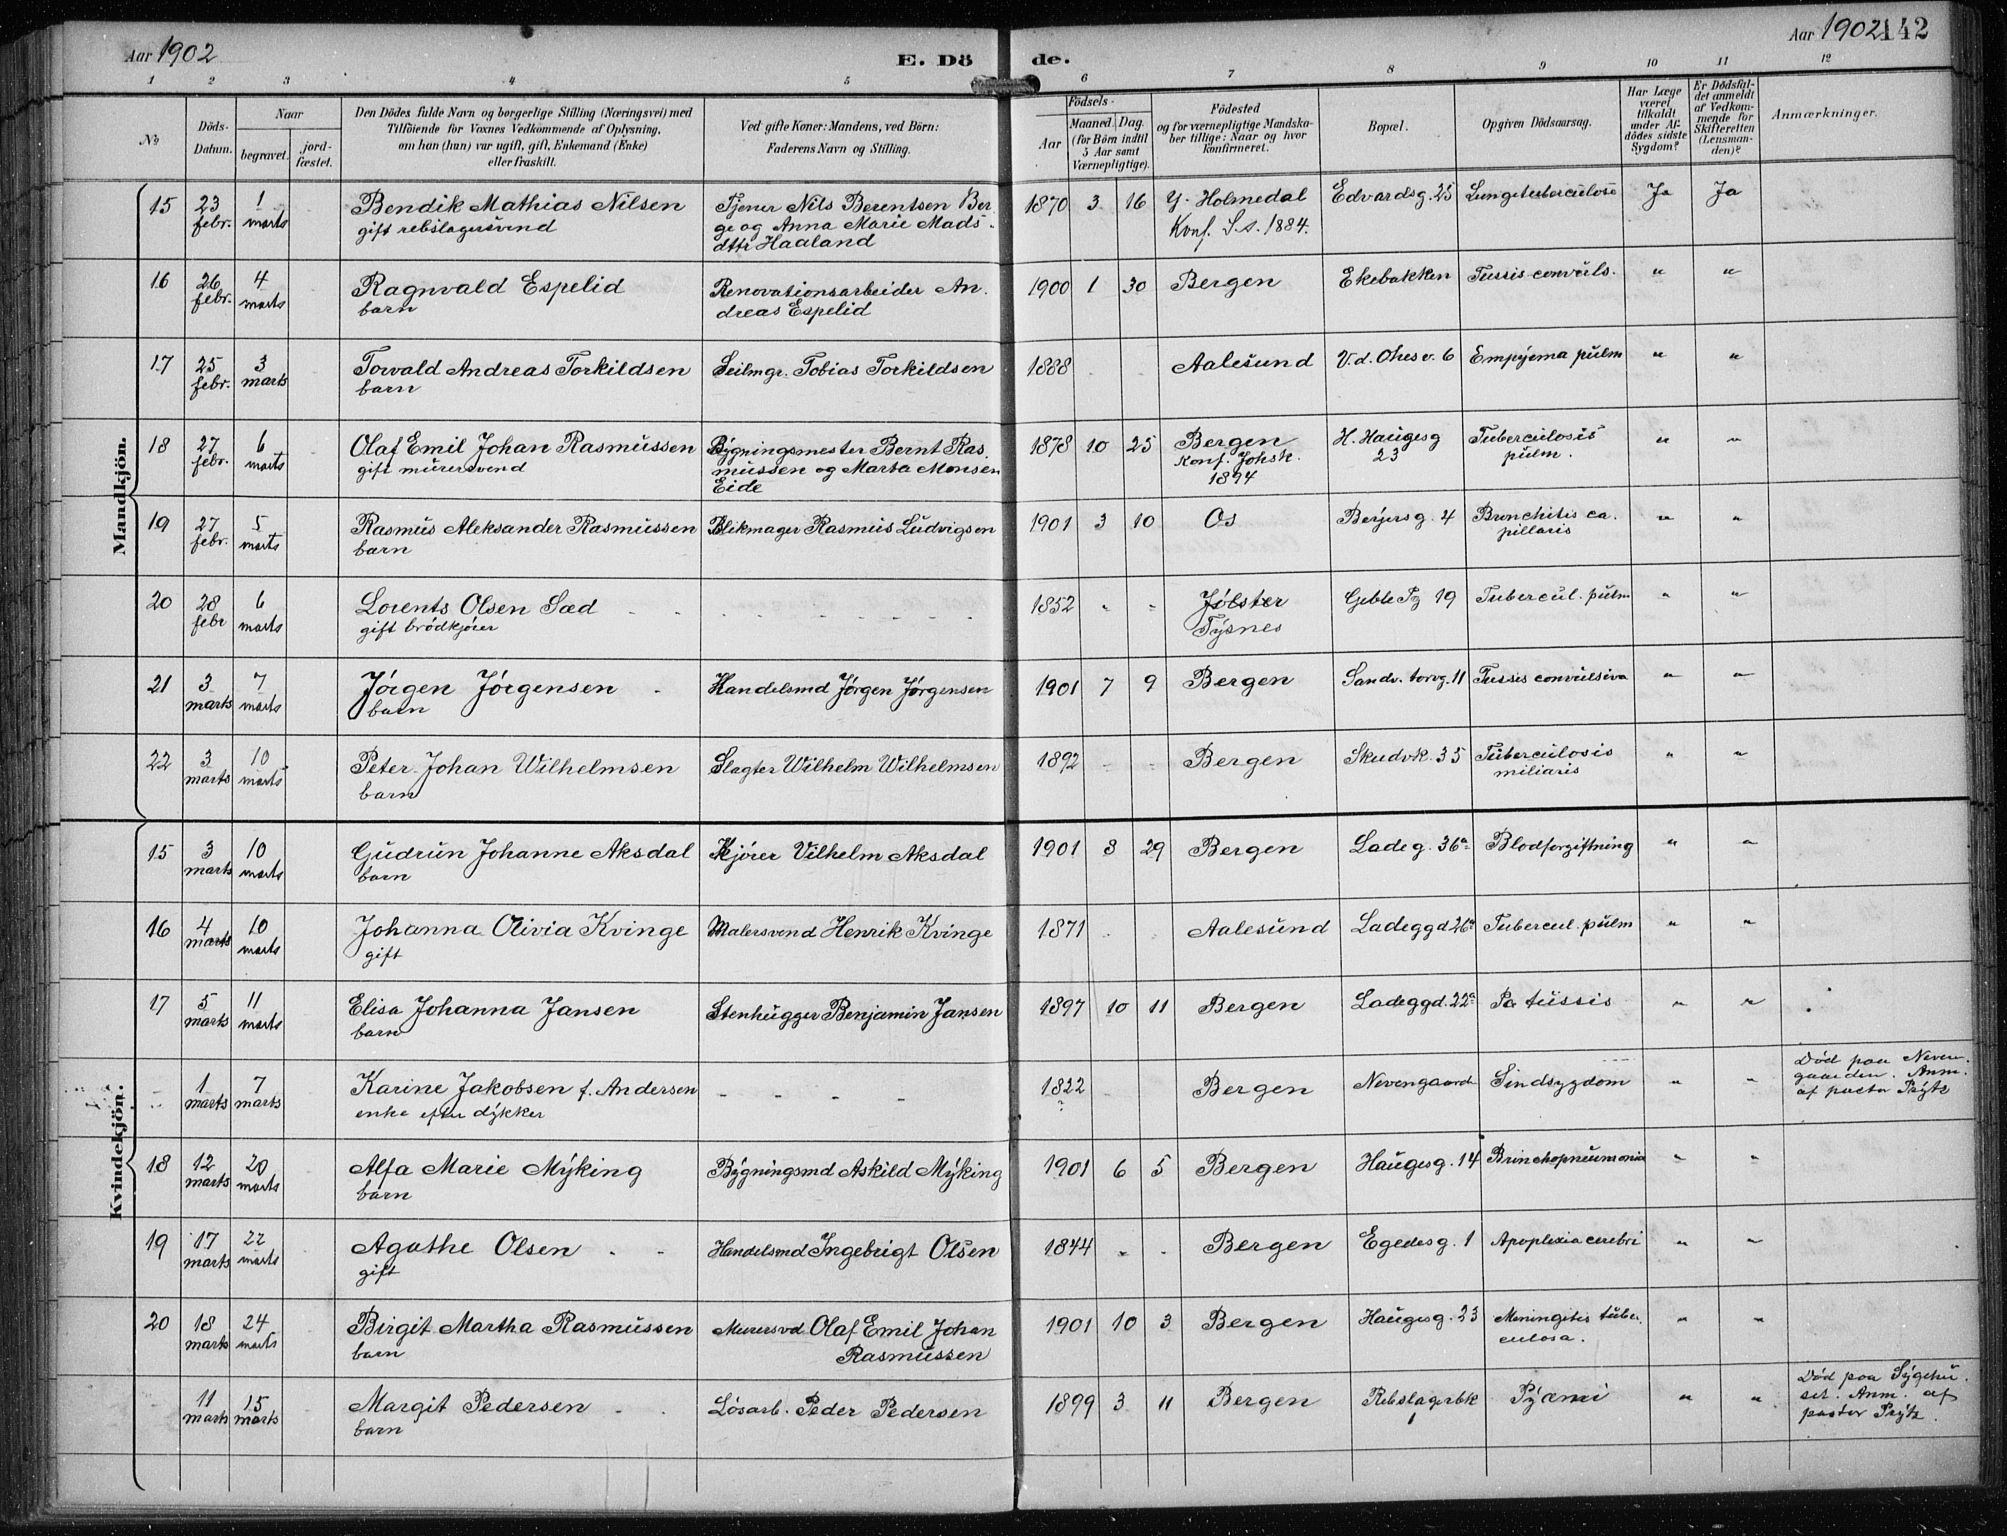 Aar 1902
E. Dö
de.
Aar 1902
142
1 2 3 4 5 6 7 8 9 10 11 12
No
Döds-
Datum.
Naar
begravet.
jord-
fæstet.
Den Dödes fulde Navn og borgerlige Stilling (Næringsvei) med
Tilföiende for Voxnes Vedkommende af Oplysning,
om han (hun) var ugift, gift, Enkemand (Enke)
eller fraskilt.
Ved gifte Koner: Mandens, ved Börn:
Faderens Navn og Stilling.
Födsels-
Aar
Maaned. Dag.
(for Börn indtil
5 Aar samt
Værnepligtige).
Födested
og for værnepligtige Mandska-
ber tillige: Naar og hvor
konfirmeret.
Bopæl.
Opgiven Dödsaarsag.
Har Læge
været
tilkaldt
under Af-
dödes sidste
Sygdom?
Er Dödsfal-
det anmeldt
af Vedkom-
mende for
Skifteretten
(Lensman-
den)?
Anmærkninger.
Mandkjön.
15 23 febr. 1 marts
Bendik Mathias Nilsen
gift rebslagersvend
Tjener Nils Berentsen Ber
ge og Anna Marie Mads-
dttr Haaland
1870 3 16 Y. Holmedal
Konf. S.s. 1884.
Edvardsg. 25 Lungetuberculose Ja Ja
16 26 febr. 4 marts
Ragnvald Espelid
barn
Renovationsarbeider An-
dreas Espelid
1900 1 30 Bergen Ekebakken Tussis convuls. " "
17 25 febr. 3 marts
Torvald Andreas Torkildsen
barn
Seilmgr. Tobias Torkildsen
1888 Aalesund V.d. Ohes v. 6 Empyema pulm " "
18 27 febr. 6 marts
Olaf Emil Johan Rasmussen
gift murersvend
Bygningsmester Bernt Ras-
mussen og Marta Monsen
Eide
1878 10 25 Bergen
Konf. Johsk.
1894
H. Haugesg
23
Tuberculosis
pulm. " "
19 27 febr. 5 marts
Rasmus Aleksander Rasmussen
barn
Blikmager Rasmus Ludvigsen
1901 3 10 Os Beyersg. 4 Bronchitis ca-
pillaris " "
20 28 febr 6 marts
Lorents Olsen Sæd
gift brödkjörer
1852 " " Jølster
Tysnes
Geble Pg 19 Tubercul. pulm " "
21 3 marts 7 marts
Jörgen Jörgensen
barn
Handelsmd Jörgen Jörgensen
1901 7 9 Bergen Sandv. torvg. 11 Tussis convulsiva " "
22 3 marts 10 marts
Peter Johan Wilhelmsen
barn
Slagter Wilhelm Wilhelmsen
1892 Bergen Skudvk. 35 Tuberculosis
miliaris " "
Kvindekjön.
15 3 marts 10 marts
Gudrun Johanne Aksdal
barn
Kjörer Vilhelm Aksdal
1901 8 29 Bergen Ladeg. 36a Blodforgiftning " "
16 4 marts 10 marts
Johanna Olivia Kvinge
gift
Malersvend Henrik Kvinge
1871 Aalesund Ladeggd 26a Tubercul. pulm " "
17 5 marts 11 marts
Elisa Johanna Jansen
barn
Stenhugger Benjamin Jansen
1897 10 11 Bergen Ladeggd. 22a Pertussis " "
1 marts 7 marts
Karine Jakobsen f. Andersen
enke efter dykker
1822 Bergen Nevengaard Sindsygdom " "
Död paa Neven-
gaarden. Anm.
af pastor Prÿtz
18 12 marts 20 marts
Alfa Marie Mÿking
barn
Bÿgningsmd Askild Mÿking
1901 6 5 Bergen Haugesg. 14 Brinchopneumonia " "
19 17 marts 22 marts
Agathe Olsen
gift
Handelsmd Ingebrigt Olsen
1844 Bergen Egedesg. 1 Apoplexia cerebri " "
20 18 marts 24 marts
Birgit Martha Rasmussen
barn
Murersvd Olaf Emil Johan
Rasmussen
1901 10 3 Bergen Haugesg. 23 Meningitis tuber-
culosa. " "
11 marts 15 marts
Margit Pedersen
barn
Lösarb. Peder Pedersen
1899 3 11 Bergen Rebslagerbk
1
Pyæmi " "
Död paa Sÿgehu-
set. Anm. af
pastor Prÿtz.